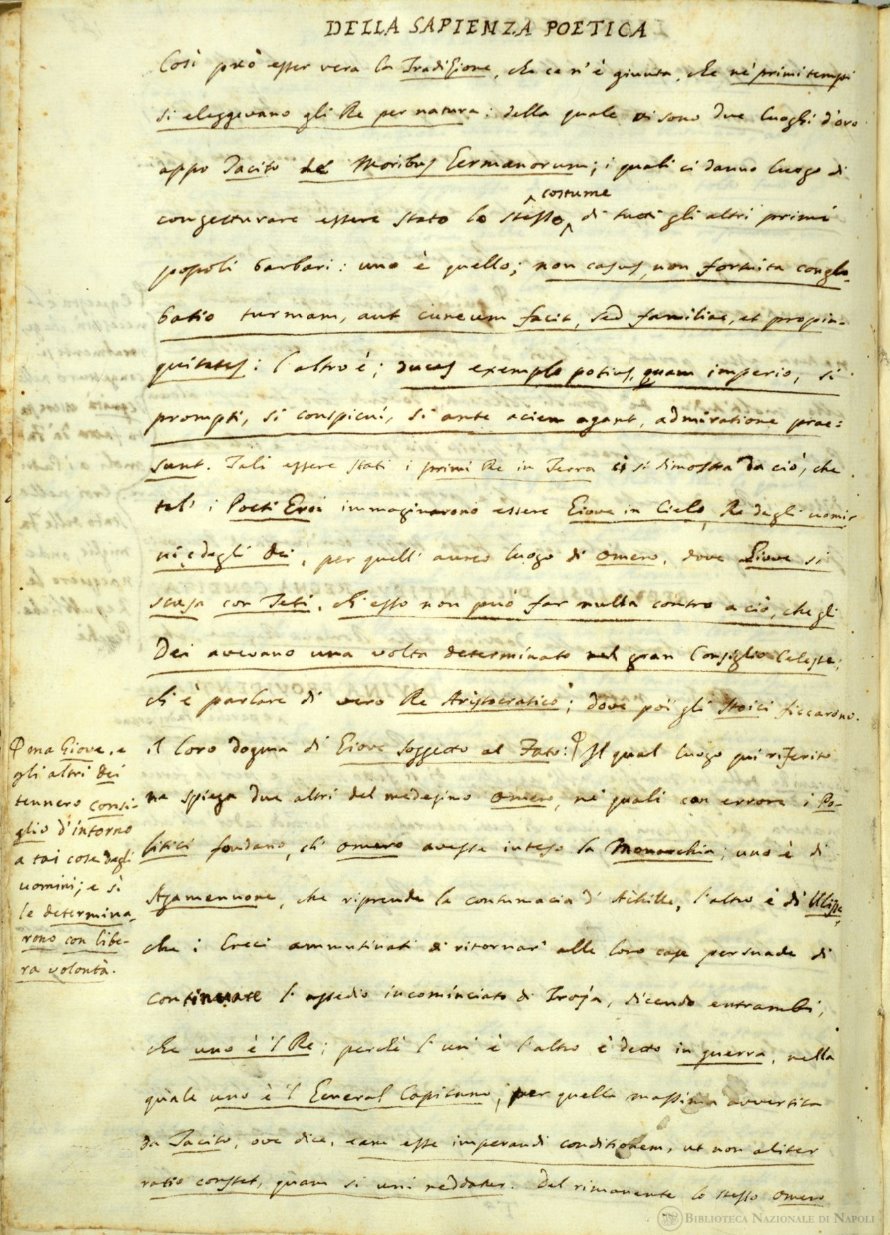 DELLA SAPIENZA POETICA
Così può esser vera la Tradizione, che ce n'è giunta, che ne' primi tempi
si eleggevano gli Re per natura: della quale vi sono due luoghi d'oro
appo Tacito de Moribus Germanorum; i quali ci danno luogo di
costume
congetturare essere stato lo stesso di tutti gli altri primi
popoli barbari: uno è quello; non casus, non fortuita conglo-
batio turmam, aut cuneum facit, sed familiae, et propin-
quitates: l'altro è; duces exemplo potius, quam imperio, si
prompti, si conspicui, si ante aciem agant, admiratione prae-
sunt. Tali essere stati i primi Re in Terra ci si dimostra da ciò, che
tal' i Poeti Eroi immaginarono essere Giove in Cielo, Re degli uomi-
ni, e degli Dei, per quell' aureo luogo di Omero, dove Giove si
scusa con Teti, ch'esso non può far nulla contro a ciò, che gli
Dei avevano una volta determinato nel gran Consiglio Celeste;
ch'è parlare di vero Re Aristocratico; dove poi gli Stoici ficcarono
il loro dogma di Giove soggetto al Fato: Il qual luogo qui riferito
ne spiega due altri del medesimo Omero, ne' quali con errore i Po-
litici fondano, ch' Omero avesse inteso la Monarchia; uno è di
Agamennone, che riprende la contumacia d' Achille, l'altro è di Ulisse,
che i Greci ammutinati di ritornar' alle loro case persuade di
continuare l' assedio incominciato di Troja, dicendo entrambi,
che uno è 'l Re; perchè l' un' è l'altro è detto in guerra, nella
quale uno è 'l General Capitano, per quella massima avvertita
da Tacito, ove dice, eam esse imperandi conditionem, ut non aliter
ratio constet, quam si uni reddatur. Del rimanente lo stesso Omero
ma Giove, e
gli altri Dei
tennero Consi-
glio d'intorno
a tai cose degli
uomini; e sì
le determina-
rono con libe-
ra volontà.
BIBLIOTECA NAZIONALE DI NAPOLI